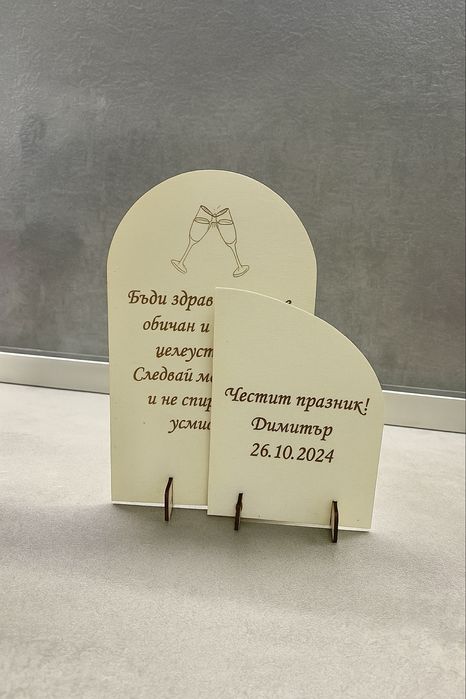 Бъди здрав
обичан и
целеуст
Следвай ме
и не спир
усмив
Честит празник!
Димитър
26.10.2024